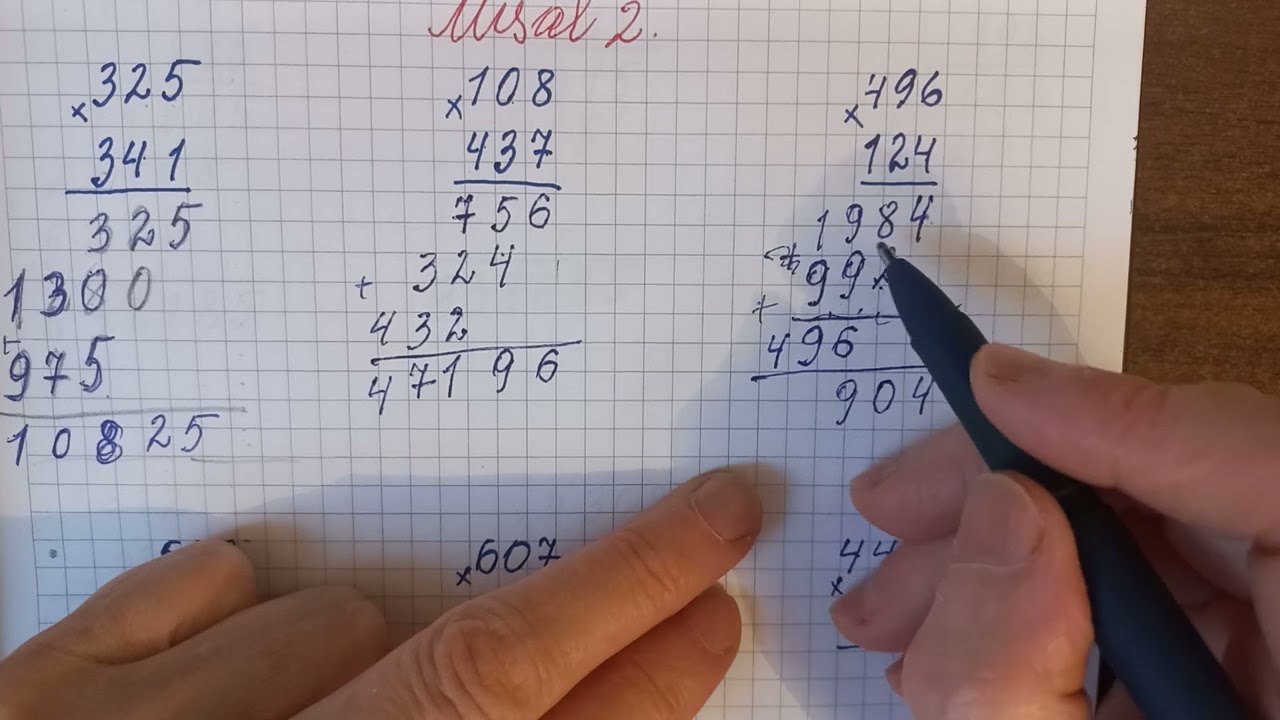 Misal 2.
325
× 341
325
1300
975
10825
108
× 437
756
+ 324
432
47196
496
× 124
1984
+ 992
496
904
× 607
44
×